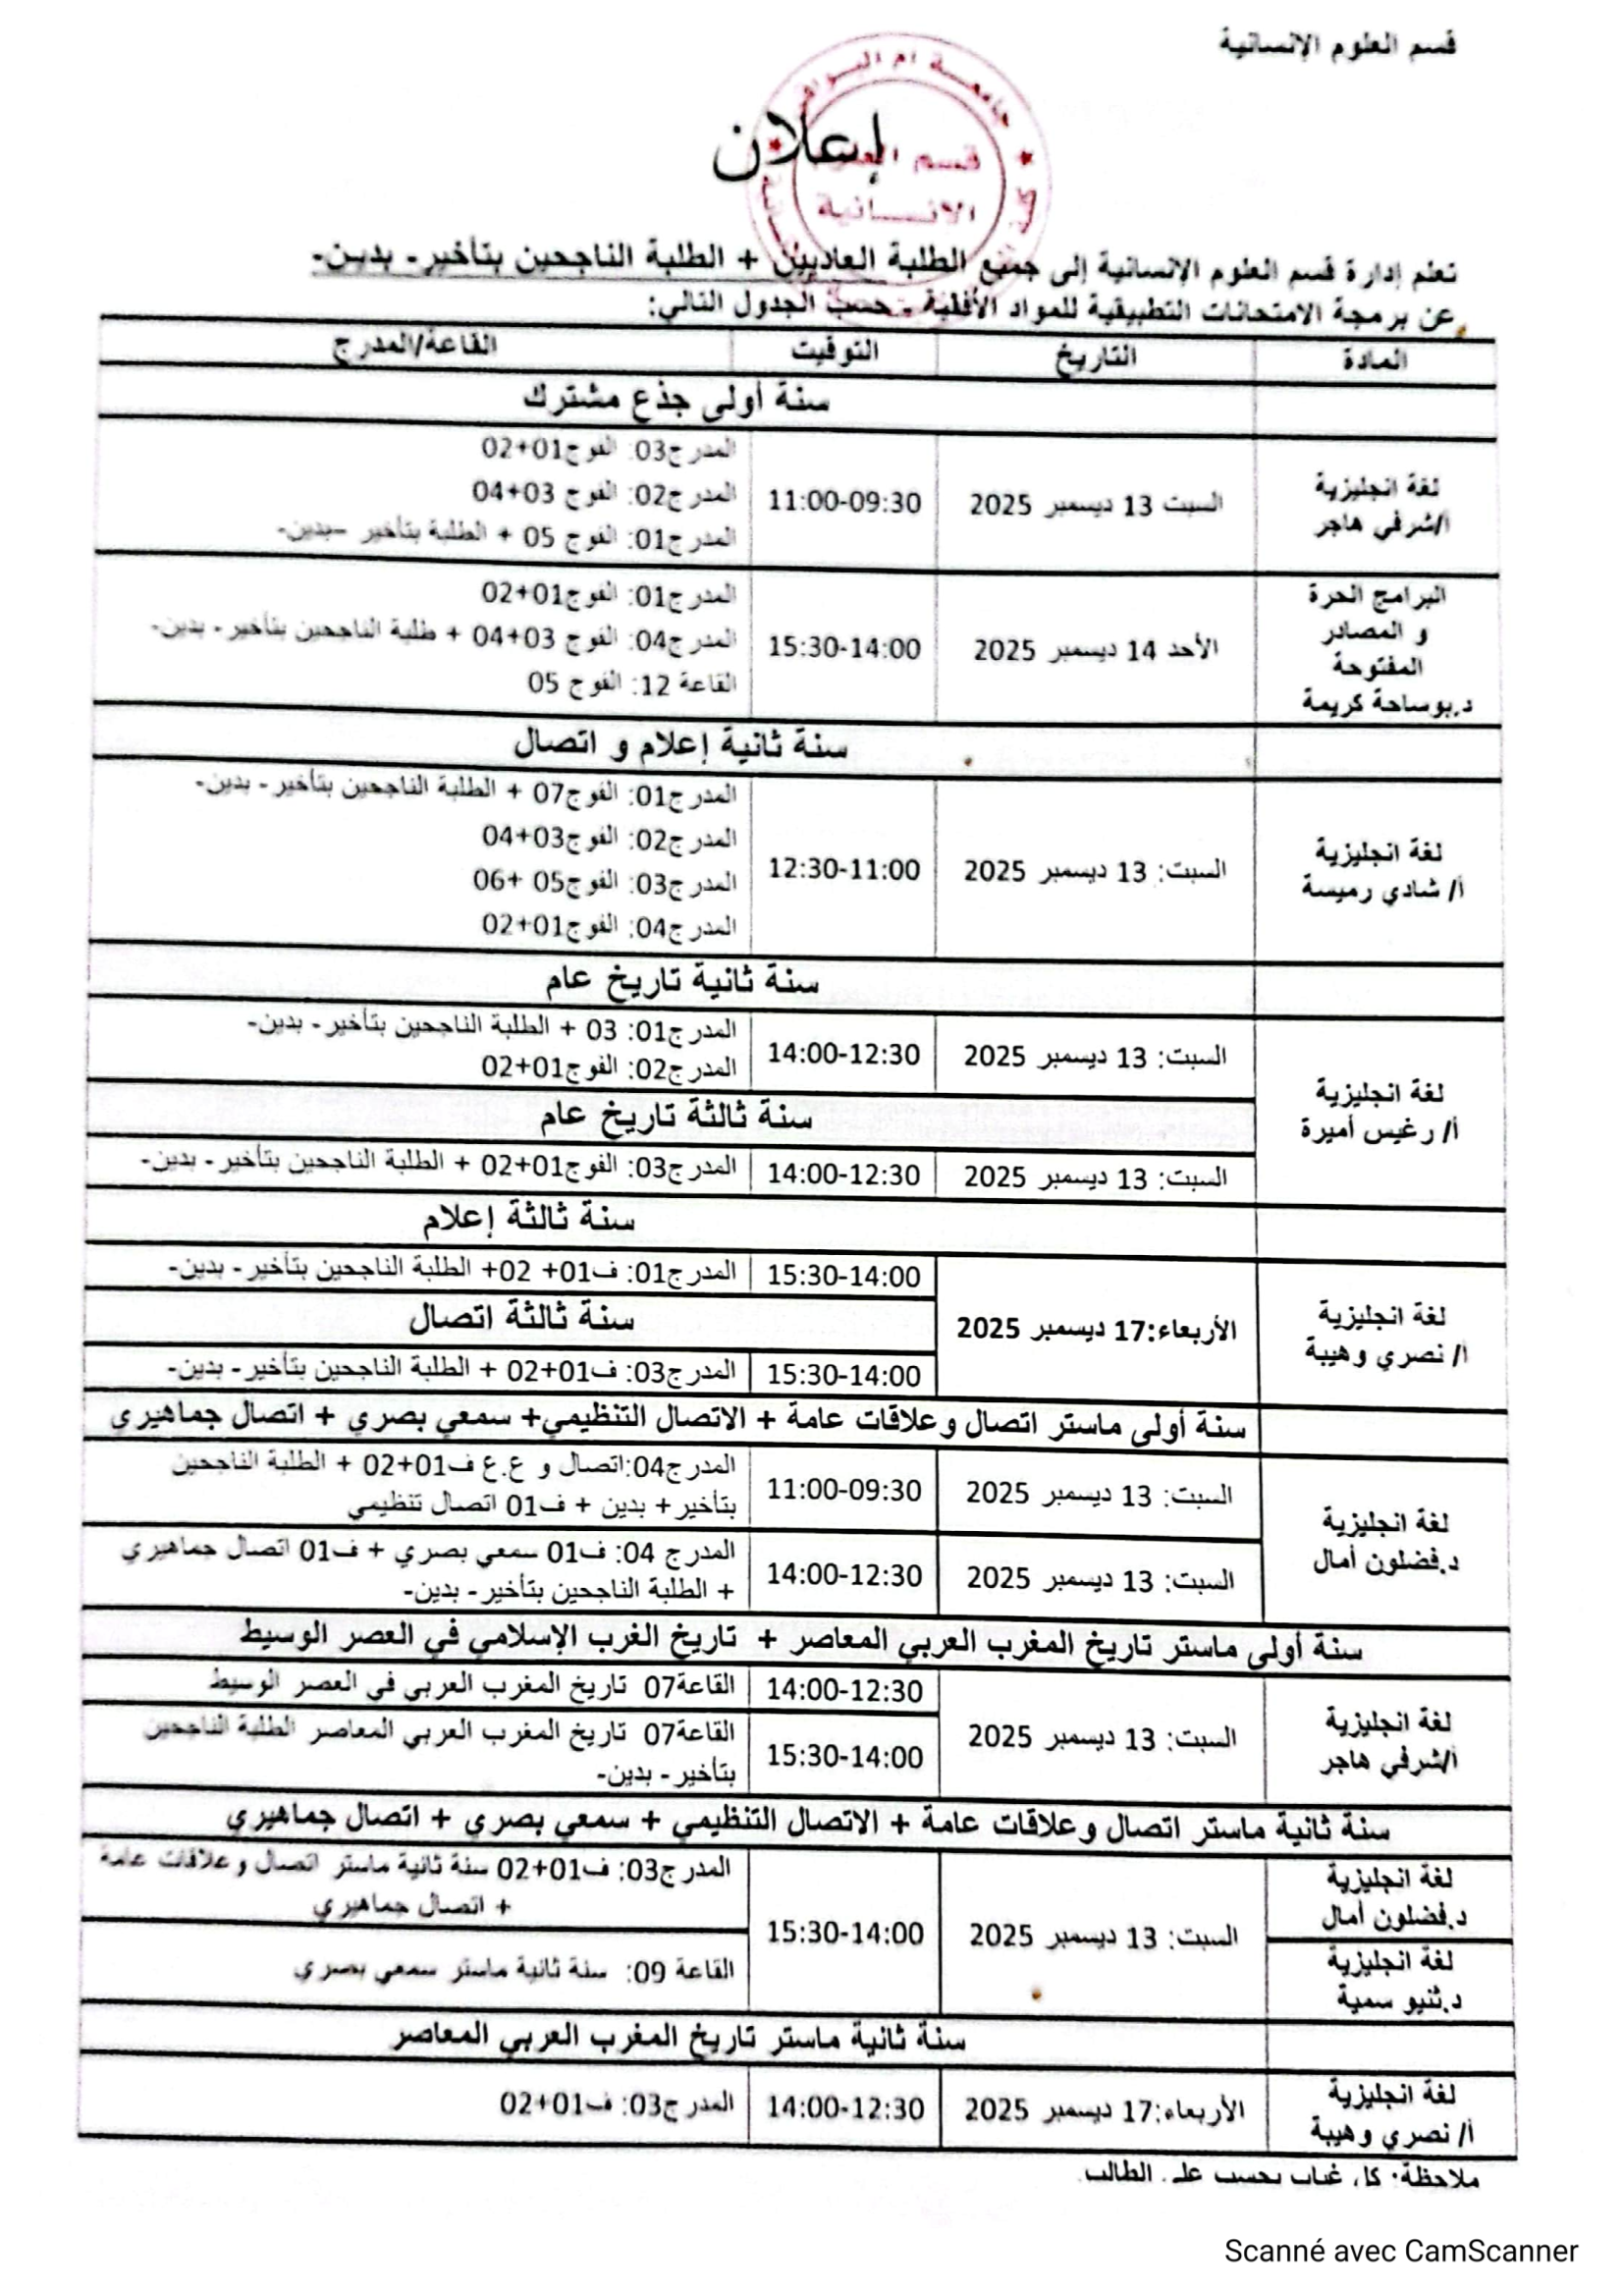 قسم العلوم الإنسانية
جامعة ام البواقي
قسم العلوم
الانسانية
إعلان
تعلم إدارة قسم العلوم الإنسانية إلى جميع الطلبة العاديين + الطلبة الناجحين بتأخير- بدين-
عن برمجة الامتحانات التطبيقية للمواد الأفقية - حسب الجدول التالي:
المادة التاريخ التوقيت القاعة/المدرج
سنة أولى جذع مشترك
لغة انجليزية
أ/شرفي هاجر
السبت 13 ديسمبر 2025
11:00-09:30
المدرج03: الفوج01+02
المدرج02: الفوج 03+04
المدرج01: الفوج 05 + الطلبة بتأخير –بدين-
البرامج الحرة
و المصادر
المفتوحة
د.بوساحة كريمة
الأحد 14 ديسمبر 2025
15:30-14:00
المدرج01: الفوج01+02
المدرج04: الفوج 03+04 + طلبة الناجحين بتأخير- بدين-
القاعة 12: الفوج 05
سنة ثانية إعلام و اتصال
لغة انجليزية
أ/ شادي رميسة
السبت: 13 ديسمبر 2025
12:30-11:00
المدرج01: الفوج07 + الطلبة الناجحين بتأخير- بدين-
المدرج02: الفوج03+04
المدرج03: الفوج05 +06
المدرج04: الفوج01+02
سنة ثانية تاريخ عام
لغة انجليزية
أ/ رغيس أميرة
السبت: 13 ديسمبر 2025
14:00-12:30
المدرج01: 03 + الطلبة الناجحين بتأخير- بدين-
المدرج02: الفوج01+02
سنة ثالثة تاريخ عام
السبت: 13 ديسمبر 2025
14:00-12:30
المدرج03: الفوج01+02 + الطلبة الناجحين بتأخير- بدين-
سنة ثالثة إعلام
لغة انجليزية
أ/ نصري وهيبة
الأربعاء:17 ديسمبر 2025
15:30-14:00
المدرج01: ف01+ 02+ الطلبة الناجحين بتأخير- بدين-
سنة ثالثة اتصال
15:30-14:00
المدرج03: ف01+02 + الطلبة الناجحين بتأخير- بدين-
سنة أولى ماستر اتصال وعلاقات عامة + الاتصال التنظيمي+ سمعي بصري + اتصال جماهيري
لغة انجليزية
د.فضلون أمال
السبت: 13 ديسمبر 2025
11:00-09:30
المدرج04:اتصال و ع.ع ف01+02 + الطلبة الناجحين
بتأخير+ بدين + ف01 اتصال تنظيمي
السبت: 13 ديسمبر 2025
14:00-12:30
المدرج 04: ف01 سمعي بصري + ف01 اتصال جماهيري
+ الطلبة الناجحين بتأخير- بدين-
سنة أولى ماستر تاريخ المغرب العربي المعاصر + تاريخ الغرب الإسلامي في العصر الوسيط
لغة انجليزية
أ/شرفي هاجر
السبت: 13 ديسمبر 2025
14:00-12:30
القاعة07 تاريخ المغرب العربي في العصر الوسيط
15:30-14:00
القاعة07 تاريخ المغرب العربي المعاصر الطلبة الناجحين
بتأخير- بدين-
سنة ثانية ماستر اتصال وعلاقات عامة + الاتصال التنظيمي + سمعي بصري + اتصال جماهيري
لغة انجليزية
د.فضلون أمال
السبت: 13 ديسمبر 2025
15:30-14:00
المدرج03: ف01+02 سنة ثانية ماستر اتصال وعلاقات عامة
+ اتصال جماهيري
لغة انجليزية
د.ثنيو سمية
القاعة 09: سنة ثانية ماستر سمعي بصري
سنة ثانية ماستر تاريخ المغرب العربي المعاصر
لغة انجليزية
أ/ نصري وهيبة
الأربعاء:17 ديسمبر 2025
14:00-12:30
المدرج03: ف01+02
ملاحظة: كل غياب يحسب على الطالب
Scanné avec CamScanner